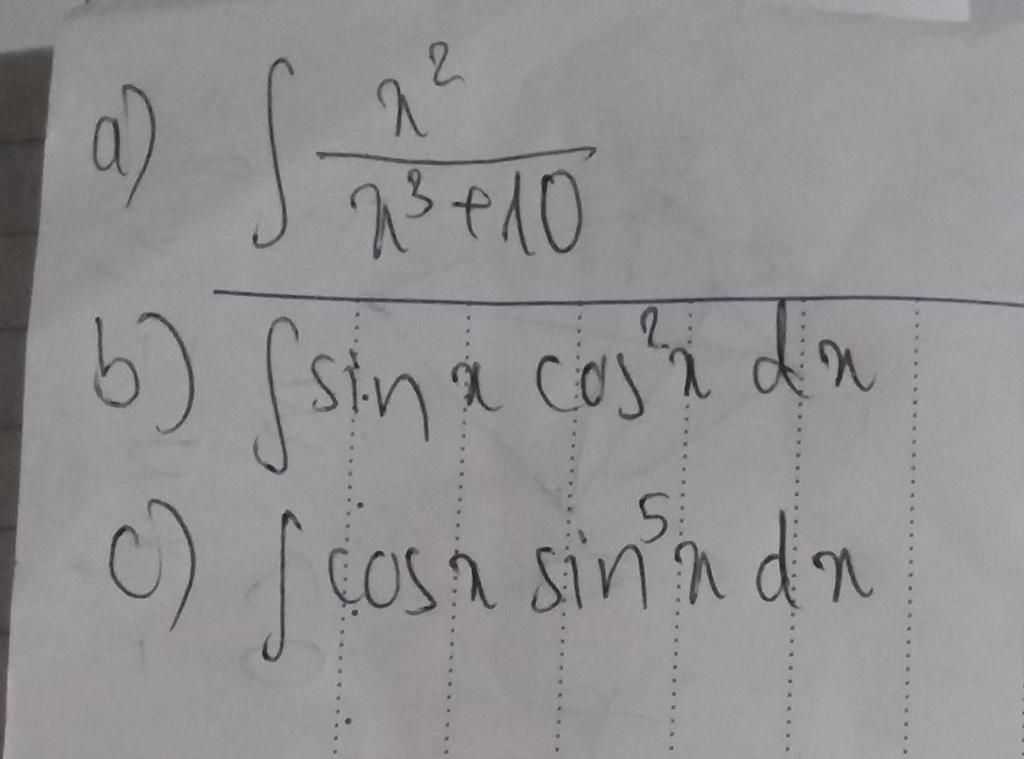 a) ∫ x² / (x³+10)
b) ∫ sin x cos²x dx
c) ∫ cosx sin⁵x dx